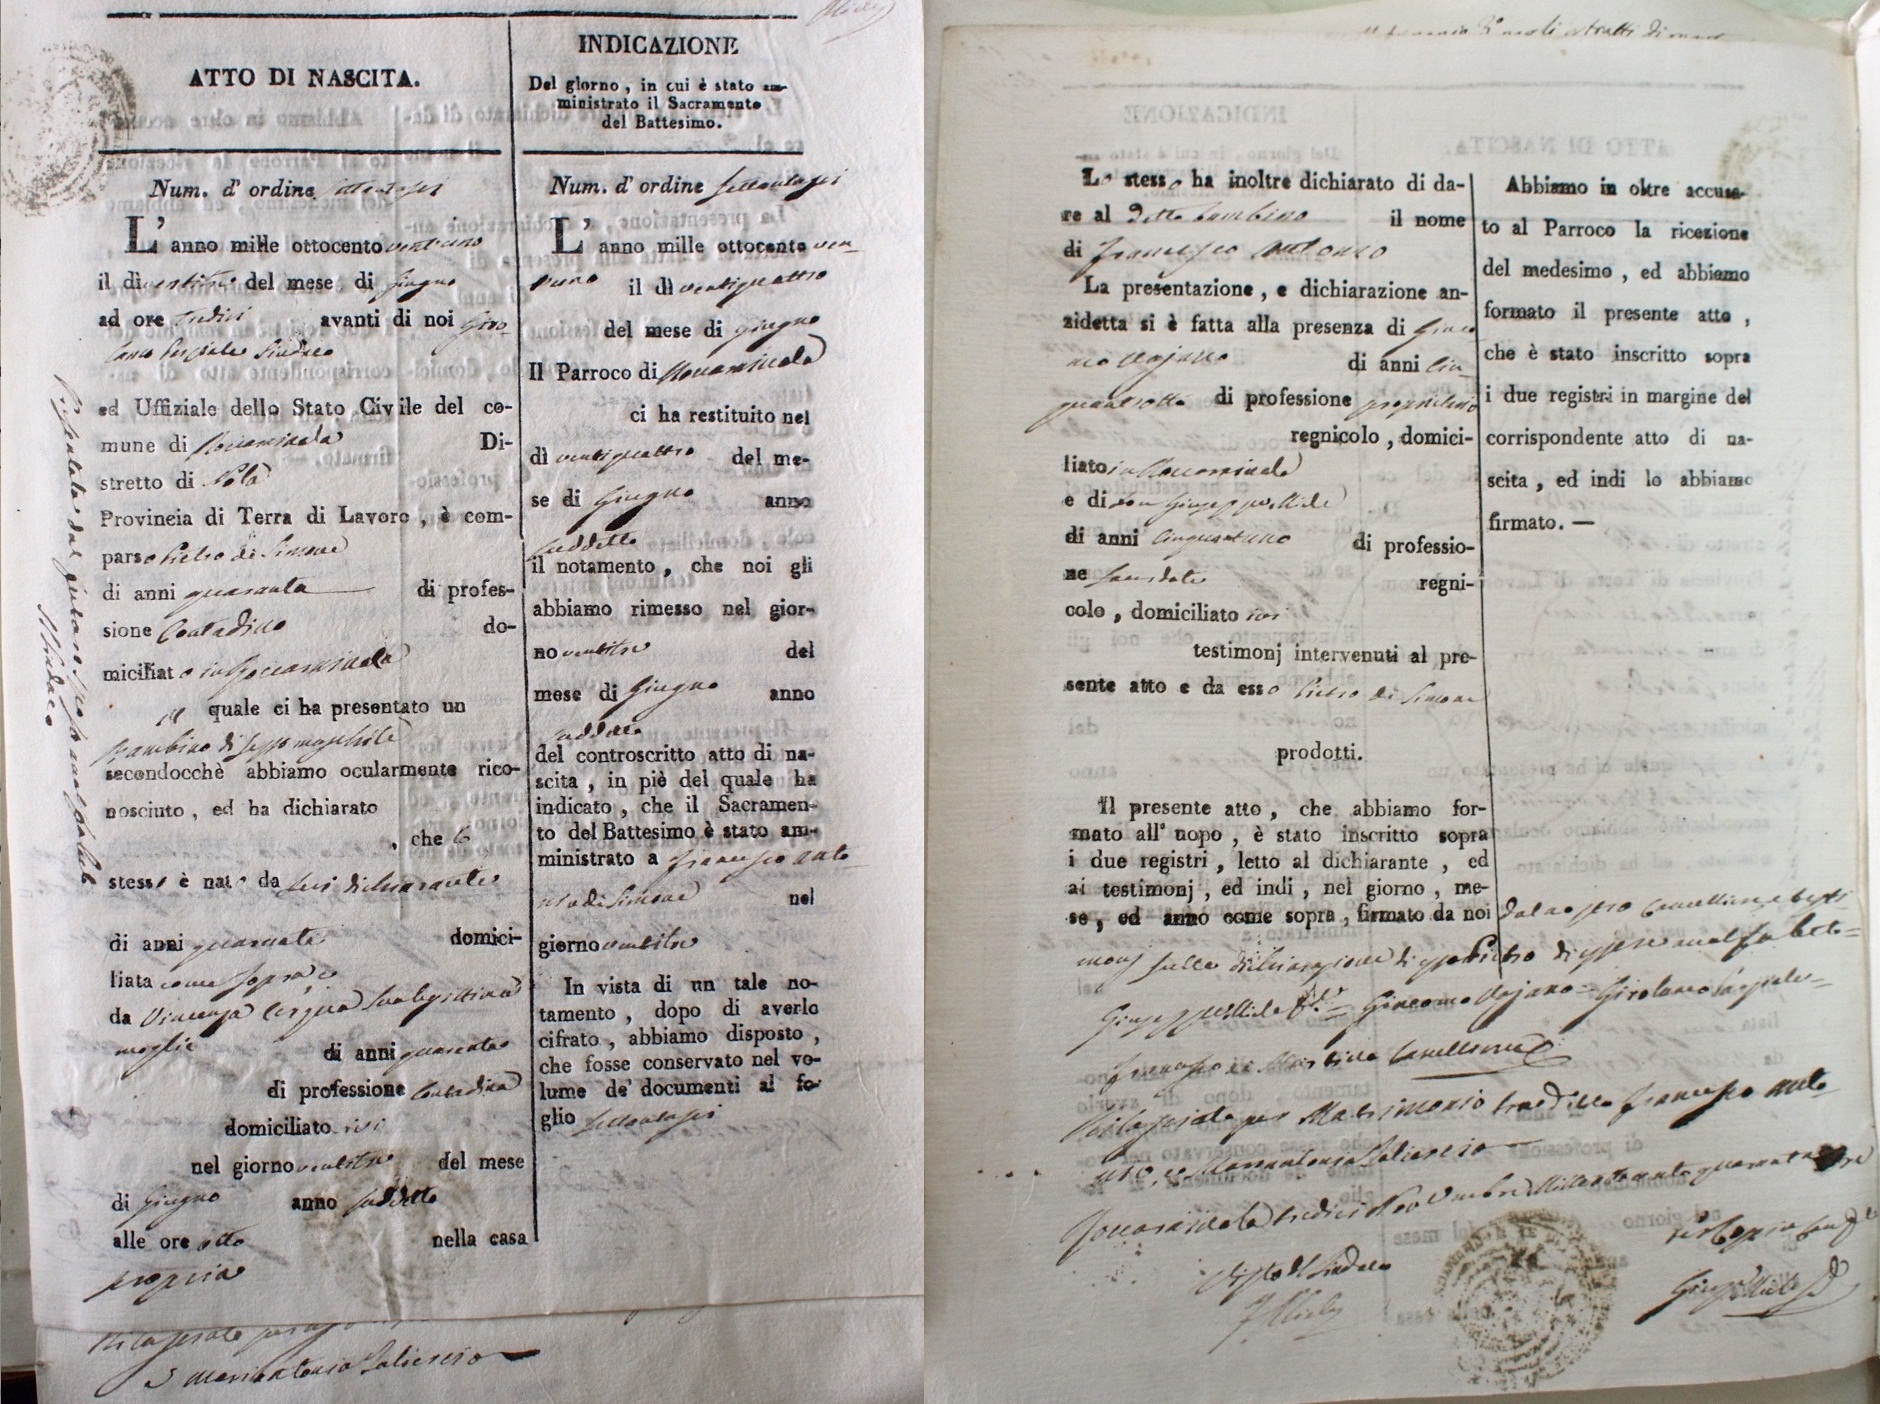 ATTO DI NASCITA.
Num. d' ordine settantasei
L' anno mille ottocento ventuno
il dì ventitre del mese di Giugno
ad ore tredici avanti di noi Giro-
lamo Sindaco
ed Uffiziale dello Stato Civile del co-
mune di Roccarainola Di-
stretto di Nola
Provincia di Terra di Lavoro, è com-
parso Pietro de Simone
di anni quaranta di profes-
sione Contadino do-
miciliato in Roccarainola
il quale ci ha presentato un
bambino di sesso maschile
secondocchè abbiamo ocularmente rico-
nosciuto, ed ha dichiarato
, che lo
stesso è nato da lui dichiarante
di anni quaranta domici-
liata come sopra, e
da Vincenza sua legittima
moglie di anni quaranta
di professione Contadina
domiciliato ivi
nel giorno ventitre del mese
di Giugno anno suddetto
alle ore otto nella casa
propria
Rilasciato per
Mariantonia
Il Sindaco
INDICAZIONE
Del giorno, in cui è stato am-
ministrato il Sacramento
del Battesimo.
Num. d' ordine settantasei
L' anno mille ottocento ven-
tuno il dì ventiquattro
del mese di Giugno
Il Parroco di Roccarainola
ci ha restituito nel
dì ventiquattro del me-
se di Giugno anno
suddetto
il notamento, che noi gli
abbiamo rimesso nel gior-
no ventitre del
mese di Giugno anno
suddetto
del controscritto atto di na-
scita, in piè del quale ha
indicato, che il Sacramen-
to del Battesimo è stato am-
ministrato a Francesco Anto
nio di Simone nel
giorno ventitre
In vista di un tale no-
tamento, dopo di averlo
cifrato, abbiamo disposto,
che fosse conservato nel vo-
lume de' documenti al fo-
glio settantasei
Lo stesso ha inoltre dichiarato di da-
re al detto bambino il nome
di Francesco Antonio
La presentazione, e dichiarazione an-
zidetta si è fatta alla presenza di Giaco
mo di anni cin-
quantotto di professione proprietario
regnicolo, domici-
liato in Roccarainola
e di Don Giuseppe
di anni cinquantuno di professio-
ne Sacerdote regni-
colo, domiciliato ivi
testimonj intervenuti al pre-
sente atto e da esso Pietro di Simone
prodotti.
Il presente atto, che abbiamo for-
mato all' uopo, è stato inscritto sopra
i due registri, letto al dichiarante, ed
ai testimonj, ed indi, nel giorno, me-
se, ed anno come sopra, firmato da noi dal nostro Cancelliere e testi-
monj sulla dichiarazione di esso Pietro di essere analfabeto =
Giuseppe Giacomo Girolamo
Francesco Cancelliere
Rilasciato per Matrimonio tra detto Francesco Anto-
nio, e Mariantonia
Roccarainola tredici Novembre
Visto Il Sindaco
Abbiamo in oltre accusa-
to al Parroco la ricezione
del medesimo, ed abbiamo
formato il presente atto,
che è stato inscritto sopra
i due registri in margine del
corrispondente atto di na-
scita, ed indi lo abbiamo
firmato. —